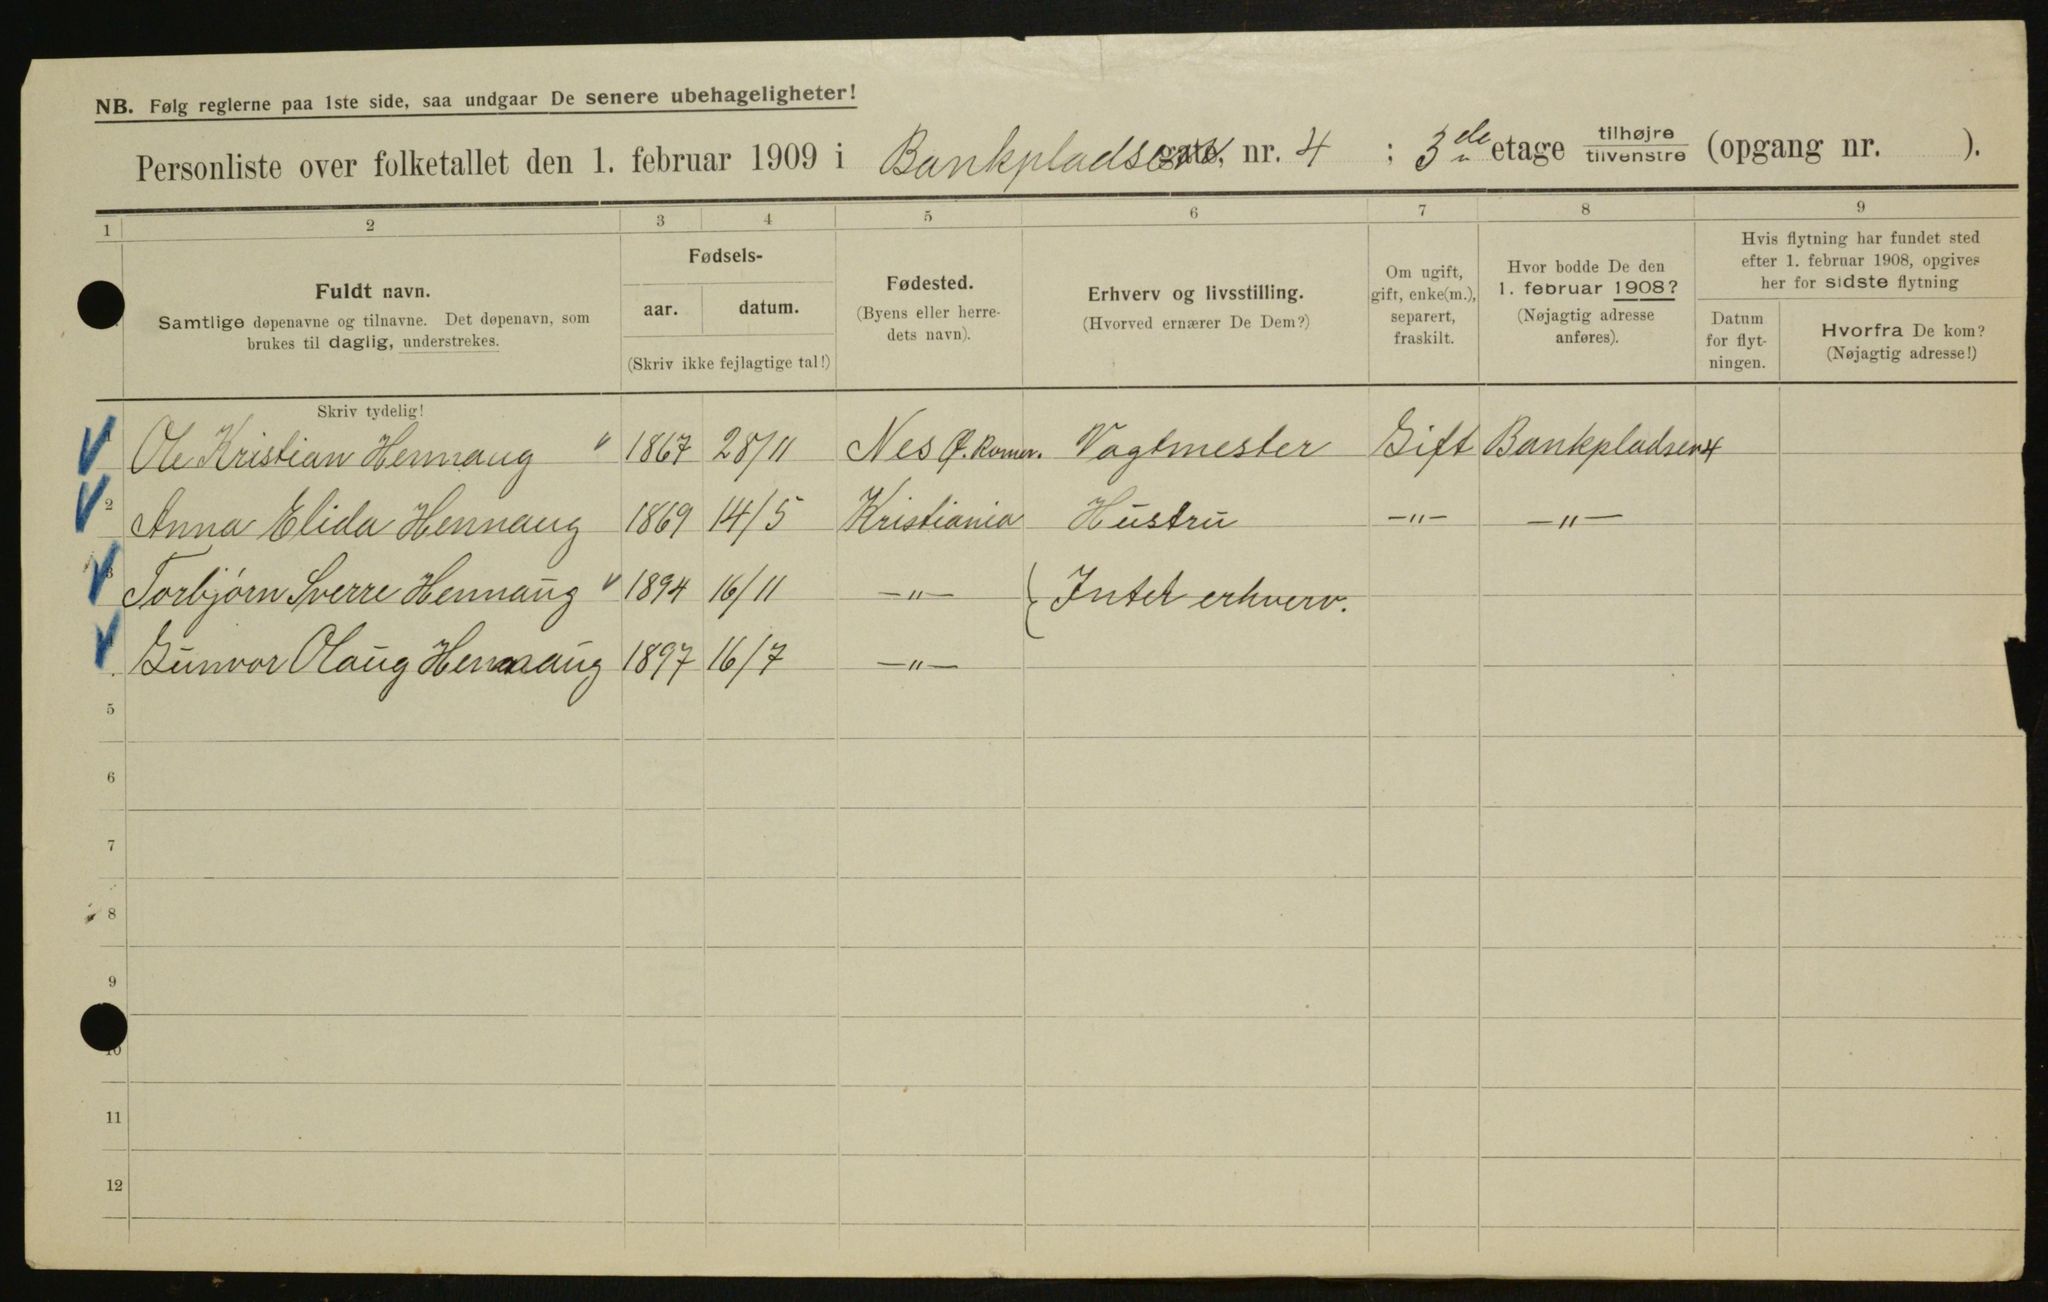 NB. Følg reglerne paa 1ste side, saa undgaar De senere ubehageligheter!
Personliste over folketallet den 1. februar 1909 i Bankpladsen gate, nr. 4 ; 3de etage tilhøjre tilvenstre (opgang nr. ).
1 2 3 4 5 6 7 8 9
Fuldt navn.
Samtlige døpenavne og tilnavne. Det døpenavn, som
brukes til daglig, understrekes.
Skriv tydelig!
Fødsels-
aar. datum.
(Skriv ikke fejlagtige tal!)
Fødested.
(Byens eller herre-
dets navn).
Erhverv og livsstilling.
(Hvorved ernærer De Dem?)
Om ugift,
gift, enke(m.),
separert,
fraskilt.
Hvor bodde De den
1. februar 1908?
(Nøjagtig adresse
anføres).
Hvis flytning har fundet sted
efter 1. februar 1908, opgives
her for sidste flytning
Datum
for flyt-
ningen.
Hvorfra De kom?
(Nøjagtig adresse!)
Ole Kristian Hennaug " 1867 28/11 Nes Ø. Romer. Vagtmester Gift Bankpladsen 4
2 Anna Elida Hennaug 1869 14/5 Kristiania Hustru —"— —"—
3 Torbjørn Sverre Hennaug " 1894 16/11 —"— { Intet erhverv.
Gunvor Olaug Hennaug 1897 16/7 —"—
5
6
7
8
9
10
11
12